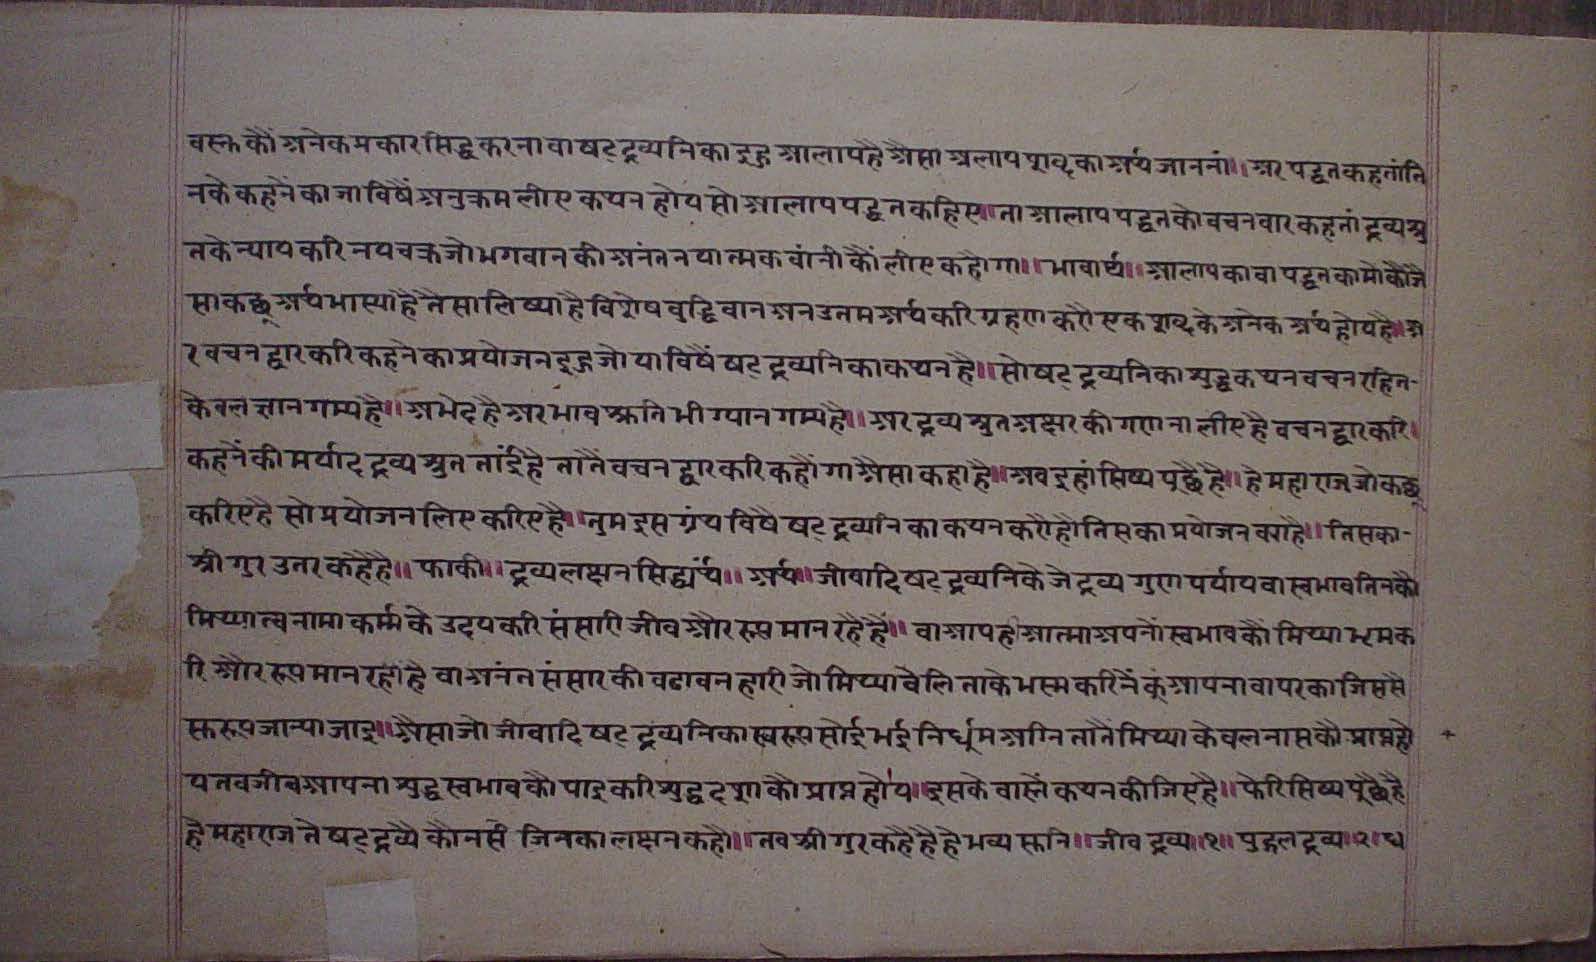 वस्त कौं अनेक प्रकार सिद्ध करना वा षट् द्रव्यनि का इह आलाप है अैसा अलाप शब्द का अर्थ जाननां॥ अर पद्धत कहतां ति
नके कहनें का जा विषैं अनुक्रम लीए कथन होय सो आलाप पद्धत कहिए॥ ता आलाप पद्धत को वचन वार कहतां द्रव्य श्रु
त के न्याय करि नयचक्र जो भगवान की अनंत नयात्मक वांनी कौं लीए कहोगा॥ भावार्थ॥ आलाप का वा पद्धत का मोकौं जै
सा कछू अर्थ भास्या है तैसा लिष्या है विशेष वुद्धिवान अन उतम अर्थ करि ग्रहण करौ एक शब्द के अनेक अर्थ होय है॥ अ
र वचन द्वार करि कहने का प्रयोजन इह जो या विषैं षट् द्रव्यनि का कथन है॥ सो षट् द्रव्यनि का शुद्ध कथन वचन रहित-
केवल ज्ञान गम्य है॥ अभेद है अर भाव श्रुति भी ग्यान गम्य है॥ अर द्रव्य श्रुत अक्षर की गणना लीए है वचन द्वार करि।
कहनें की मर्याद द्रव्य श्रुत तांई है तातैं वचन द्वार करि कहौंगा अैसा कहा है॥ अव इहां सिष्य पूछै है॥ हे महाराज जो कछू
करिए है सो प्रयोजन लिए करिए है॥ तुम इस ग्रंथ विषै षट् द्रव्यनि का कथन करौ हौ तिस का प्रयोजन क्या है॥ तिस का-
श्री गुर उतर कहै है॥ फाकी॥ द्रव्य लक्षन सिद्ध्यर्थं॥ अर्थ॥ जीवादि षट् द्रव्यनि के जे द्रव्य गुण पर्याय वा स्वभाव तिनकौ
मिथ्यात्व नामा कर्म्म के उदय करि संसारी जीव और रूप मान रहै हैं॥ वा आप ह आत्मा अपनों स्वभाव कौ मिथ्या भ्रम क
रि और रूप मान रहा है वा अनंत संसार की वढावन हारी जो मिथ्या वेलि ताके भस्म करिनैं कूं आपना वा पर का जिससै
स्वरूप जान्या जाइ॥ अैसा जो जीवादि षट् द्रव्यनि का स्वरूप सोई भई निर्धूम अग्नि तातैं मिथ्या केवल नास कौ प्राप्त हो
य तव जीव आपना शुद्ध स्वभाव कौ पाइ करि शुद्ध दशा कौ प्राप्त होय॥ इस के वास्तें कथन कीजिए है॥ फेरि सिष्य पूछै है
हे महाराज ते षट् द्रव्य कौंनसे जिनका लक्षन कहौ॥ तव श्री गुर कहै है हे भव्य सुनि॥ जीव द्रव्य॥१॥ पुद्गल द्रव्य॥२॥ ध